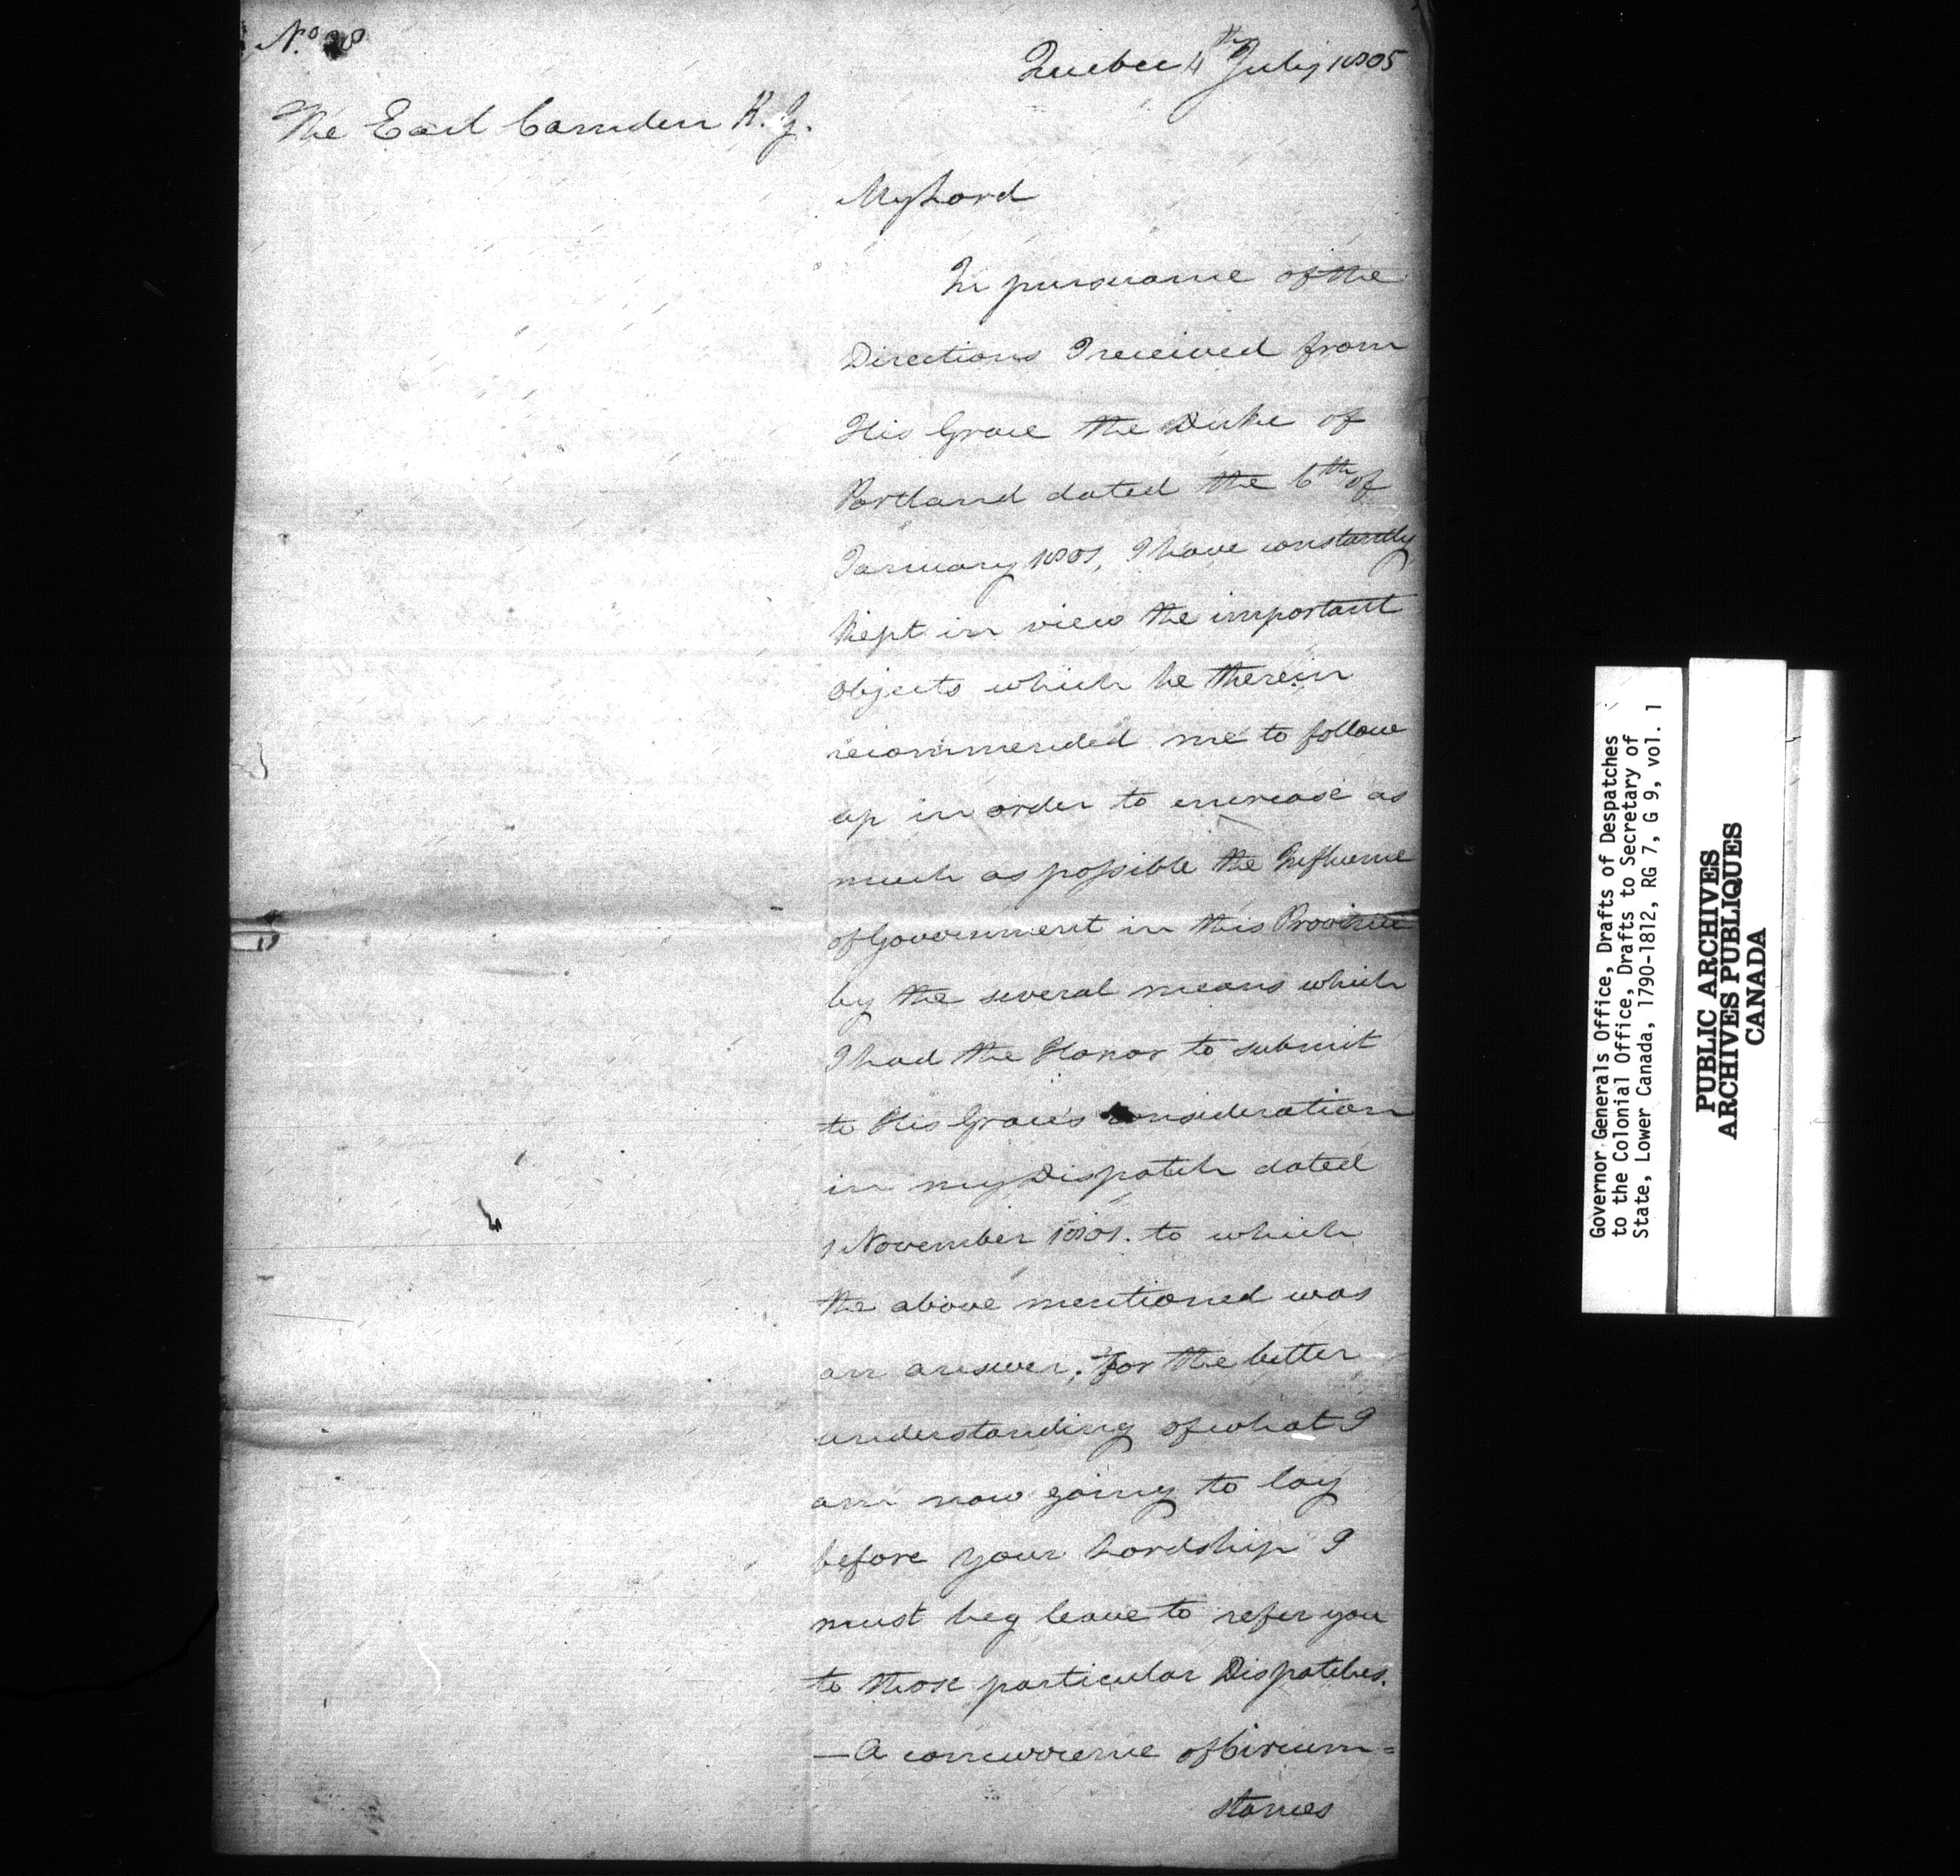 Nº 28
Quebec 4th July 1805
The Earl Camden K. G.
My Lord
In pursuance of the
Directions I received from
His Grace the Duke of
Portland dated the 6th of
January 1801, I have constantly
kept in view the important
objects which he therein
recommended me to follow
up in order to encrease as
much as possible the Influence
of Government in this Province
by the several means which
I had the Honor to submit
to His Grace's Consideration
in my Dispatch dated
1 November 1801. to which
the above mentioned was
an answer; for the better
understanding of what I
am now going to lay
before your Lordship I
must beg leave to refer you
to those particular Dispatches.
— A concurrence of Circum=
stances
Governor Generals Office, Drafts of Despatches
to the Colonial Office, Drafts to Secretary of
State, Lower Canada, 1790-1812, RG 7, G 9, vol. 1
PUBLIC ARCHIVES
ARCHIVES PUBLIQUES
CANADA